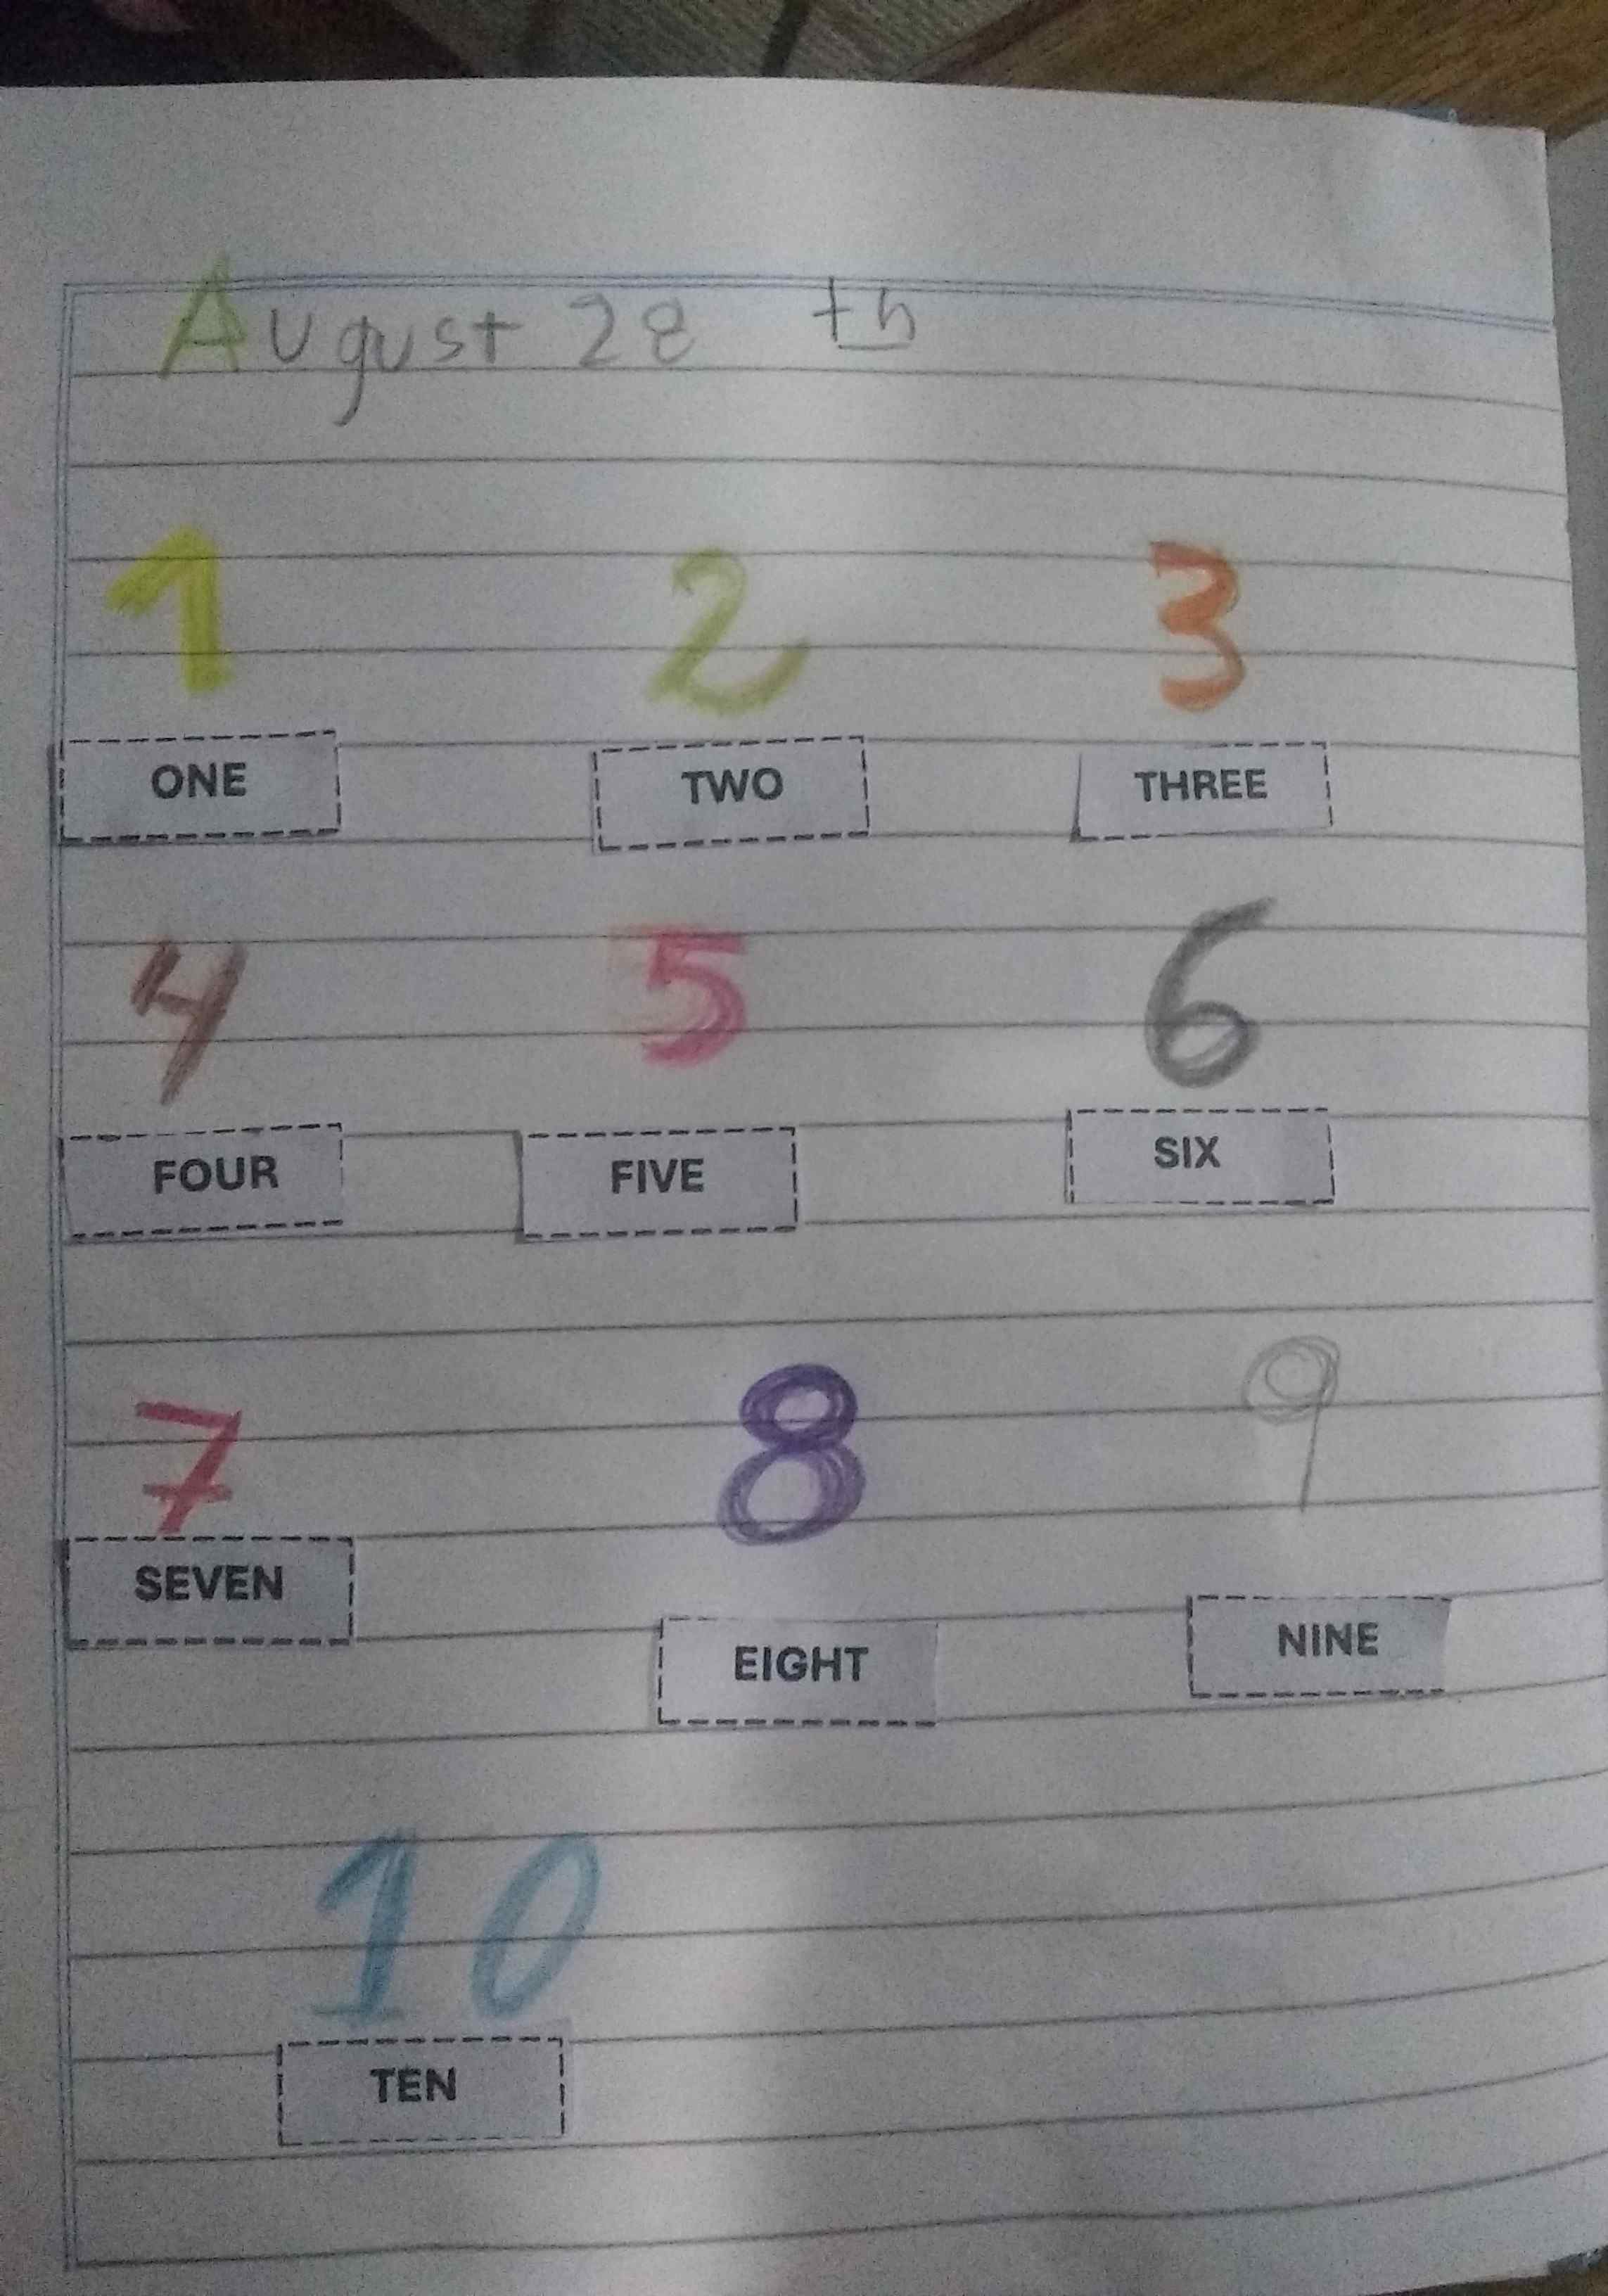 August 28 th
1 2 3
ONE TWO THREE
4 5 6
FOUR FIVE SIX
7 8 9
SEVEN EIGHT NINE
10
TEN